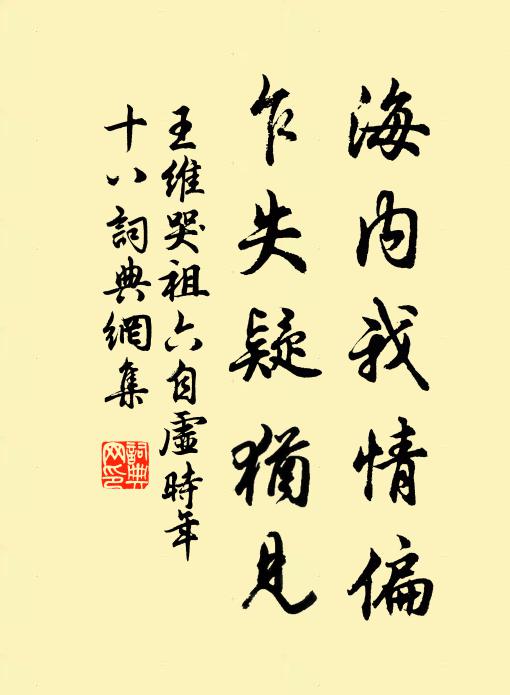 海内我情偏
乍失疑猶見
王維哭祖六自虛時年
十八詞典網集
詞典
网印